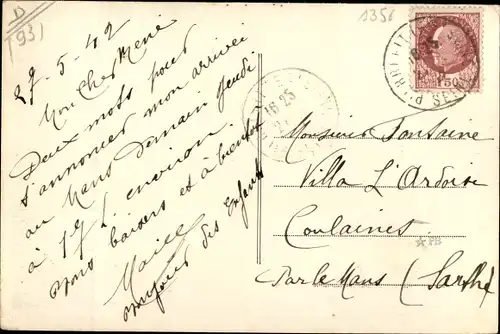 D
(93)
1358
27-5-42
Mon Cher René
Deux mots pour
t'annoncer mon arrivée
au Mans Demain Jeudi
à 17 h. environ.
Bons baisers et à bientôt
Bonjour des Enfants
16 25
Monsieur Fontaine
Villa L'Ardoise
Coulaines
Par le Mans (Sarthe)
★ PB